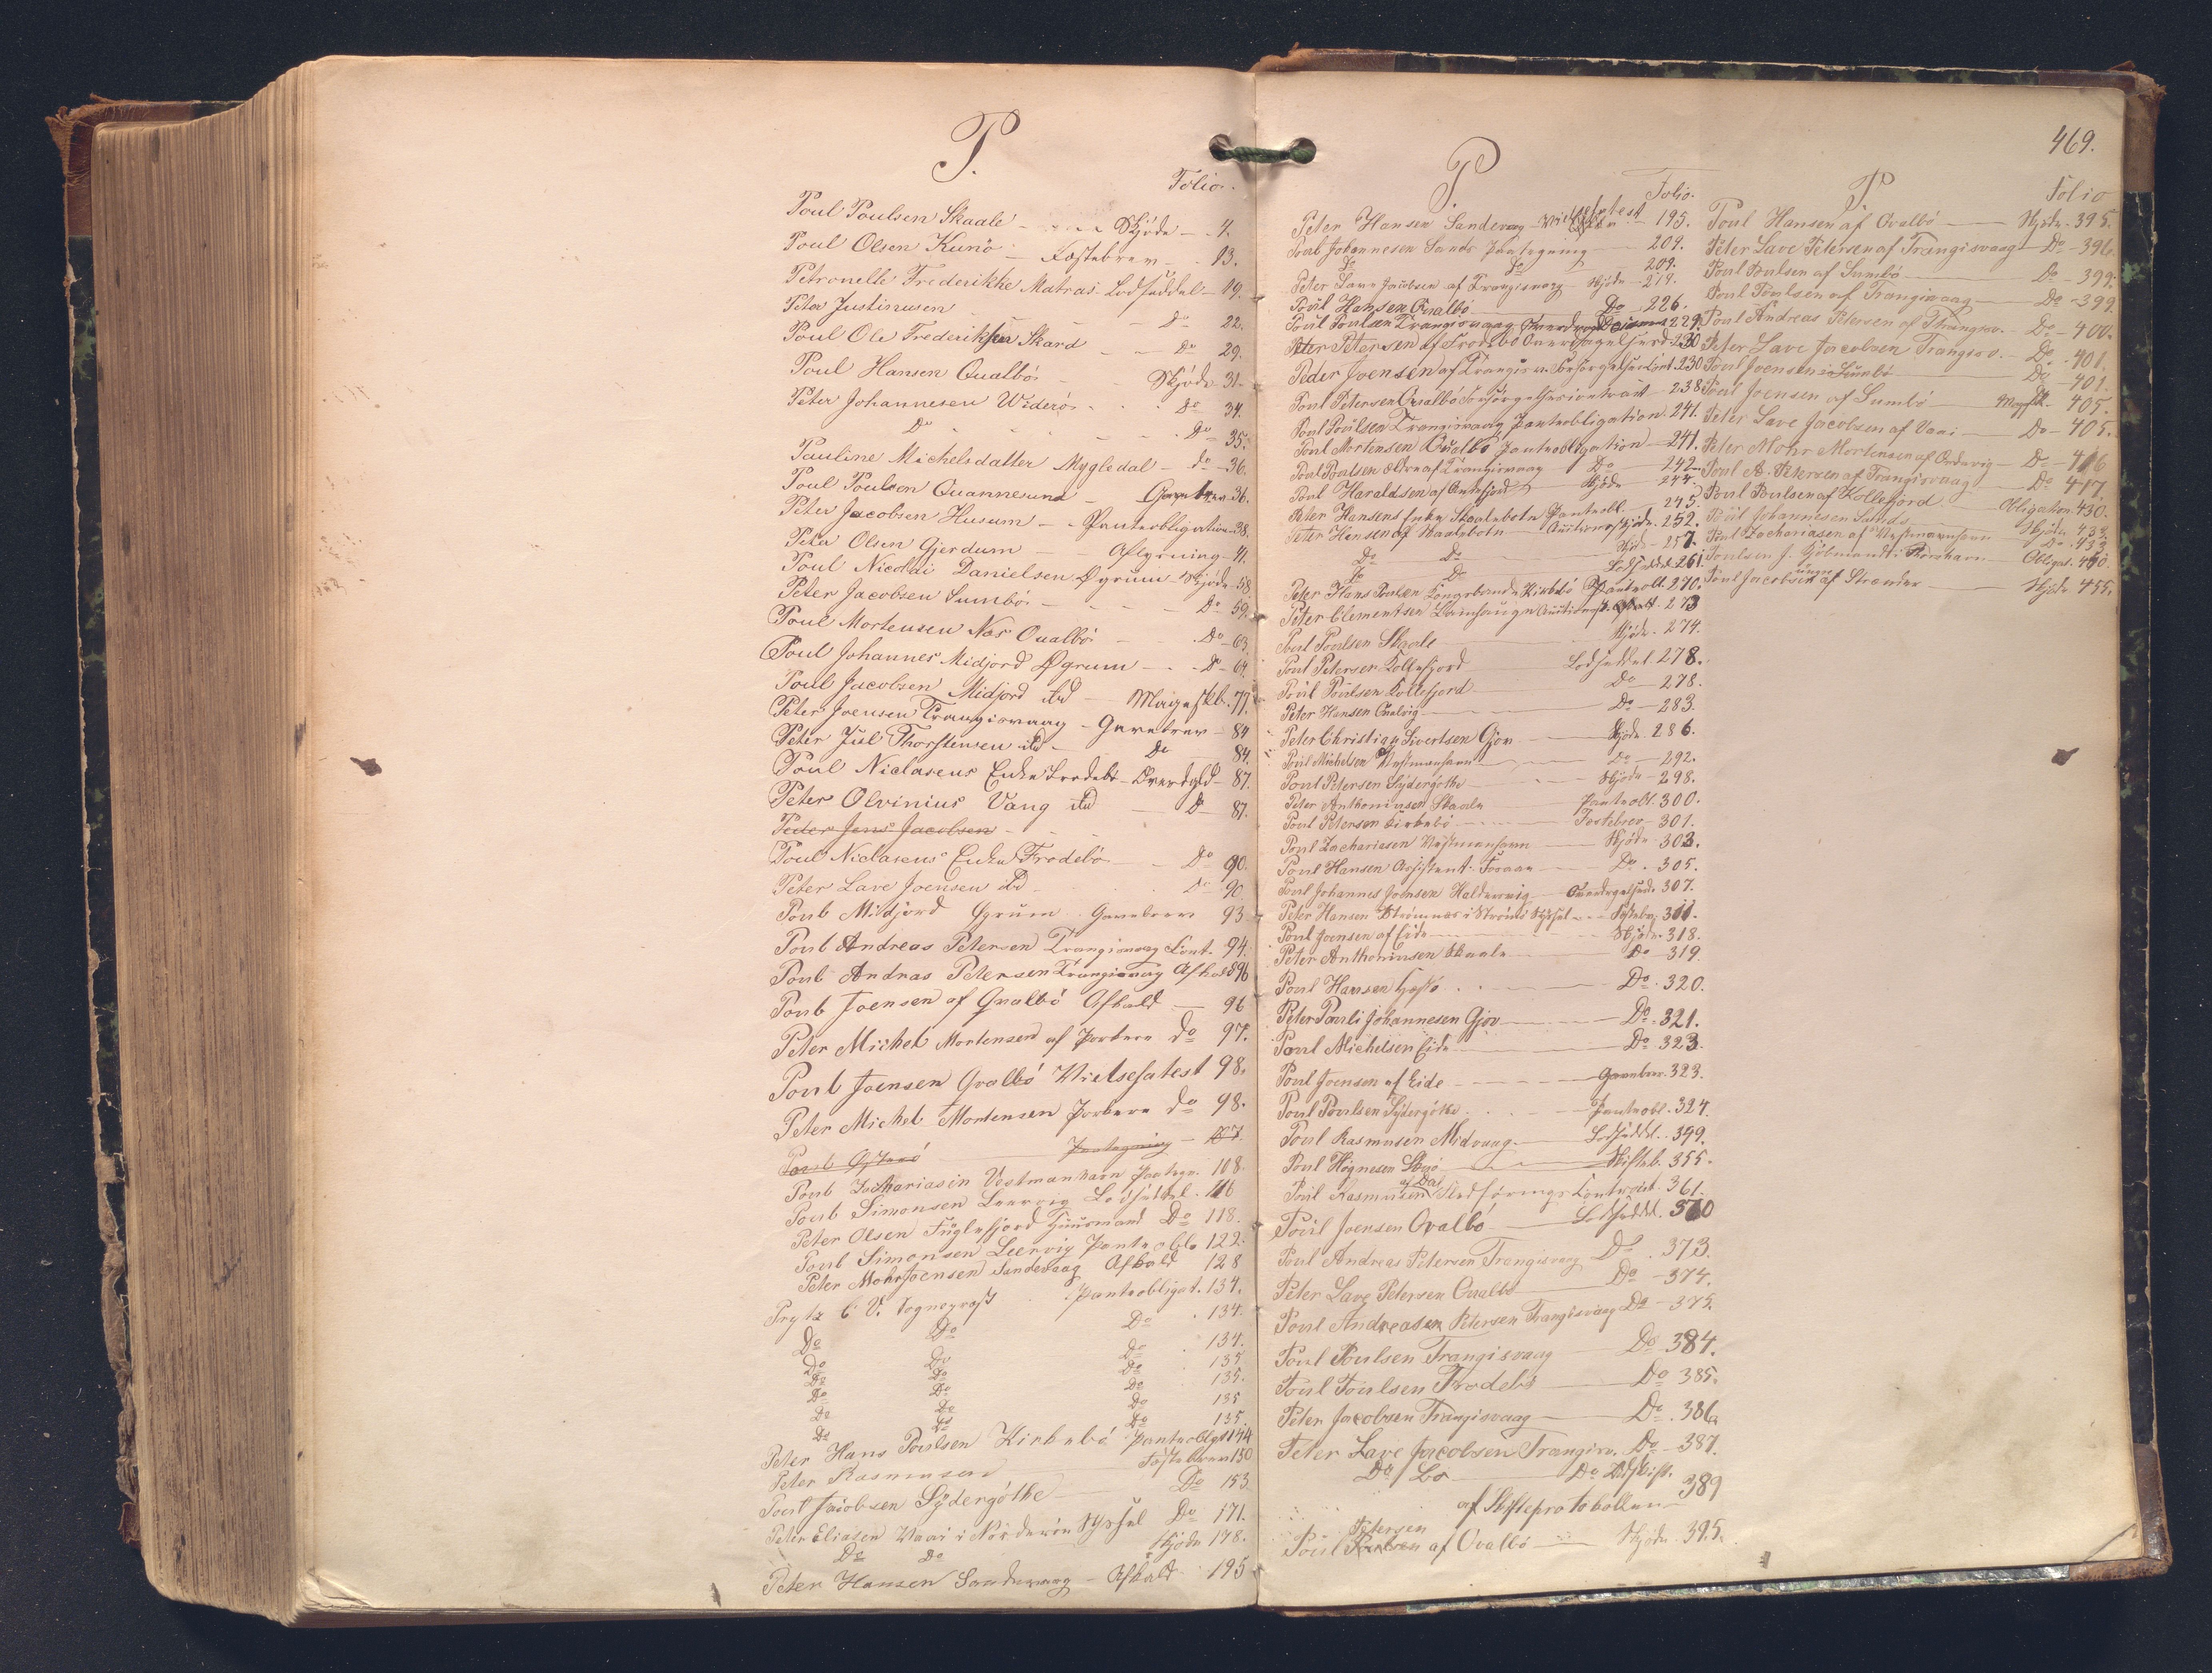 P.
Folio.
Poul Poulsen Skaale - Skjöde - 4.
Poul Olsen Kunö - Fæstebrev - 13.
Petronelle Frederikke Matras - Lodseddel - 19.
Peter Justinusen - Do 22.
Poul Ole Frederiksen Skard - Do 29.
Poul Hansen Qualbö - Skjöde 31.
Peter Johannesen Widerö - Do 34.
Do - Do 35.
Pauline Michelsdatter Mygledal - do - 36.
Poul Poulsen Quannesund - Gavebrev 36.
Peter Jacobsen Husum - Panteobligation 38.
Peter Olsen Gjerdum - Aflysning - 41.
Poul Nicolai Danielsen Øgrum Skjöde 58.
Peter Jacobsen Sumbö - Do 59.
Poul Mortensen Næs Qualbö - Do 63.
Poul Johannes Midjord Øgrum - Do - 64.
Poul Jacobsen Midjord ibd - Mageskb. 77.
Peter Joensen Trangisvaag - Gavebrev - 84
Peter Jul Thorstensen ibd - Do 84.
Poul Niclasens Enke Frodebö - Overdgld - 87.
Peter Olvinius Vang ibd Do 87.
Peder Jens Jacobsen
Poul Niclasens Enke Frodebö Do 90.
Peter Lave Joensen ibd Do 90
Poul Midjord Øgrum Gavebrev 93
Poul Andreas Petersen Trangisvaag Cont. 94.
Poul Andras Petersen Trangisvaag Afkald 96
Poul Joensen af Qvalbö Afkald 96
Peter Michel Mortensen af Porkere do 97.
Poul Joensen Qvalbö Vielsesatest 98.
Peter Michel Mortensen Porkere do 98.
Poul Paategning 107
Poul Zachariasen Vestmanhavn Paategn. 108.
Poul Simonsen Leervig Lodseddel. 116
Peter Olsen Fuglefjord Huusmand Do 118.
Poul Simonsen Leervig Panteobl. 122.
Peter Mohr Joensen Sandevaag Afkald 128
Prytz C V. Sognepræst Panteobligat. 134.
Do Do Do 134.
Do Do Do 134.
Do Do Do 135
Do Do Do 135.
Do Do Do 135
Do Do Do 135.
Peter Hans Poulsen Kirkebö Panteoblgt 144
Peter Rasmussen Fæstebrev 150
Poul Jacobsen Sydergöthe Do 153
Peter Eliasen Waai i Norderöe Syssel Do 171.
Do Do Skjöde 178.
Peter Hansen Sandevaag - Afkald 195
P.
Folio.
Peter Hansen Sandevaag Vielsesatest 195.
Poul Johannesen Sands Paategning 209.
Do Do 209.
Peter Lave Jacobsen af Trangisvaag Skjöde - 219.
Poul Hansen Qvalbö Do - 226.
Poul Poulsen Trangisvaag 229.
Peter Petersen af Frodebö 230
Peder Joensen af Trangisv. Forsörgelses Cont. 230
Poul Petersen Qvalbö Forsörgelsescontract - 238.
Poul Poulsen Trangisvaag Panteobligation. 241.
Poul Mortensen Qualbö Panteobligation - 241.
Poul Poulsen ældre af Trangisvaag Do 242.
Poul Haraldsen af Andefjord Skjöde 244.
Peter Hansens Enke Skaalebotn Panteobl. 245.
Peter Hansen af Skaalebotn Auctionsskjöde. 252.
Do Do Skjöde 257.
Do Do Lodseddel 261.
Peter Hans Poulsen Kongsbonde Kirkebö Panteobl. 270.
Peter Clementsen Lamhauge 273
Poul Poulsen Skaale Skjöde. 274.
Poul Petersen Kollefjord Lodseddel 278.
Poul Poulsen Kollefjord Do - 278.
Peter Hansen Qvalvig Do - 283.
Peter Christian Sivertsen Gjov Skjöde 286.
Poul Michelsen Vestmanhavn Do - 292.
Poul Petersen Sydergöthe Skjöde - 298.
Peter Anthoniusen Skaale Panteobl. 300.
Poul Petersen Kirkebö Fæstebrev - 301.
Poul Zachariasen Vestmanhavn Skjöde 303.
Poul Hansen Assistent Do. 305.
Poul Johannes Joensen Haldervig Overdragelsesd. 307.
Peter Hansen Strömnæs i Strömö Syssel Fæstebr. 311.
Poul Joensen af Eide Skjöde. 318.
Peter Anthoniusen Skaale Do 319.
Poul Hansen Hestö Do. 320.
Peter Pauli Johannesen Gjov Do - 321.
Poul Michelsen Eide Do. 323.
Poul Joensen af Eide Gavebrev. 323.
Poul Poulsen Sydergöthe Panteobl. 324.
Poul Rasmusen Midvaag Lodseddel. 349.
Poul Högnesen Skifteb. 355.
Poul Rasmusen af Dal Contract. 361.
Poul Joensen Qvalbö Lodseddel. 370
Poul Andreas Petersen Trangisvaag Do. 373.
Peter Lave Petersen Qvalbö Do - 374.
Poul Andreasen Petersen Trangisvaag Do - 375.
Poul Poulsen Trangisvaag Do 384.
Poul Poulsen Frodebö Do 385.
Peter Jacobsen Trangisvaag Do. 386.
Peter Lave Jacobsen Trangisv. Do - 387.
Do Do Do Udskrift.
af Skifteprotokollen 389
Petersen
Poul Poulsen af Qvalbö Skjöde. 395.
469.
P.
Folio
Poul Hansen af Qvalbö Skjöde. 395.
Peter Lave Petersen af Trangisvaag Do - 396.
Poul Poulsen af Sumbö Do - 399.
Poul Poulsen af Trangisvaag Do - 399
Poul Andreas Petersen af Thrangisv. Do - 400.
Peter Lave Jacobsen Trangisv. Do. 401.
Poul Joensen i Sumbö Do - 401.
Poul Joensen af Sumbö 405.
Peter Lave Jacobsen af Vaai Do - 405.
Peter Mohr Mortensen af Ordevig Do - 416
Poul A. Petersen af Trangisvaag Do 417
Poul Poulsen af Kollefjord Obligation. 430.
Poul Johannesen Sands Skjöde 433.
Poul Zachariasen af Vestmannhavn Do. 433.
Poulsen J. Kjöbmand i Thorshavn Obligat. 440.
yngre
Poul Jacobsen af Strænder Skjöde 455.